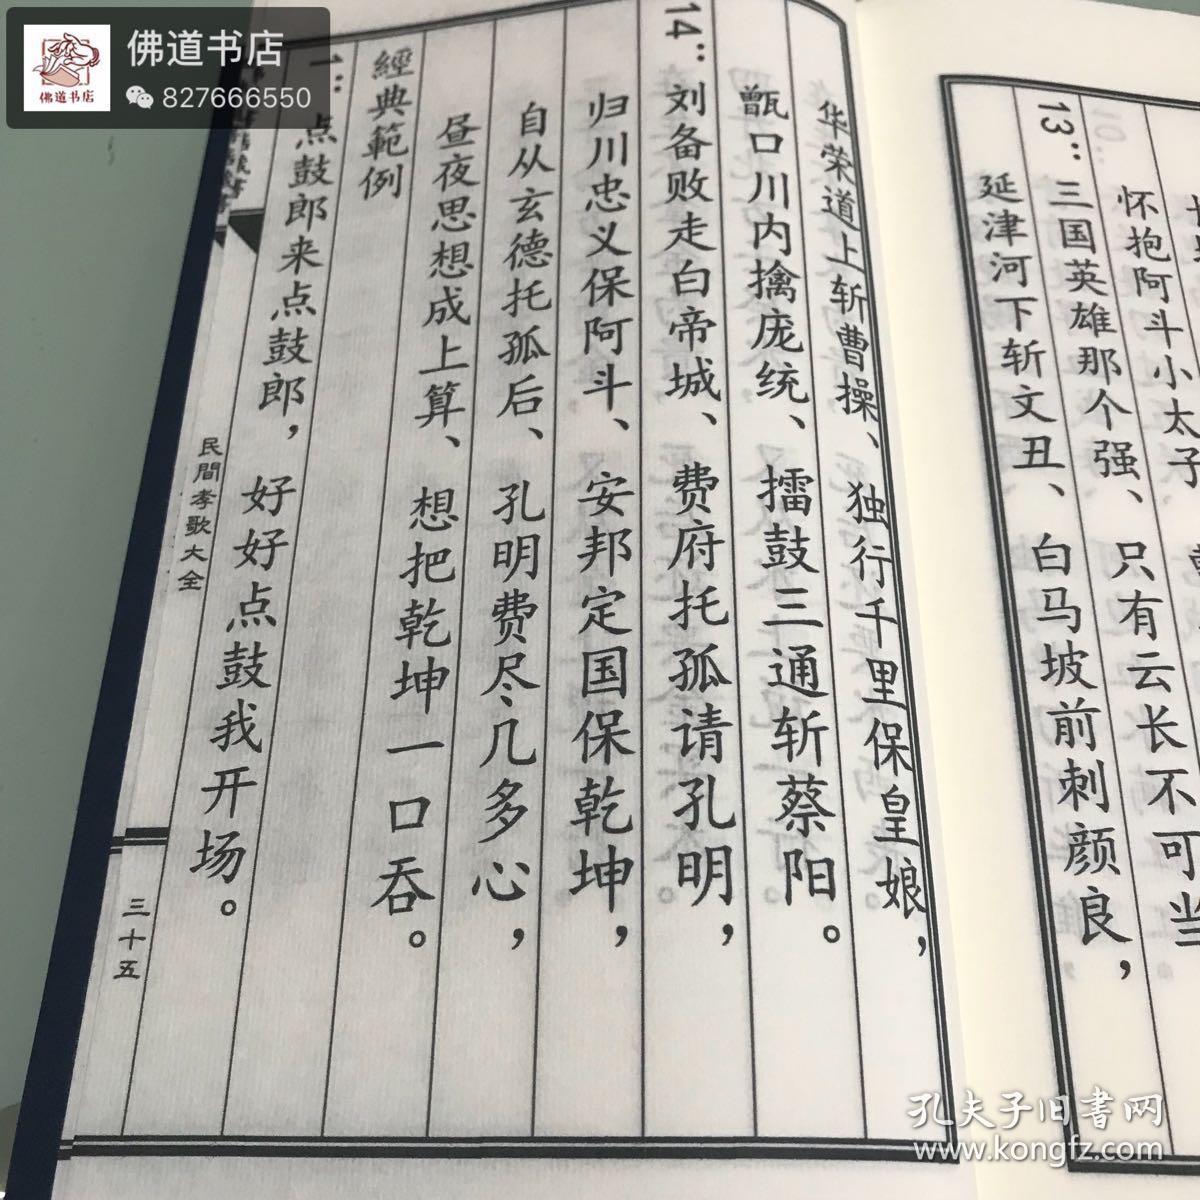 佛道书店
佛道书店
827666550
怀抱阿斗小太子
13：三国英雄那个强、只有云长不可当
延津河下斩文丑、白马坡前刺颜良，
华荣道上斩曹操、独行千里保皇娘，
甑口川内擒庞统、擂鼓三通斩蔡阳。
14：刘备败走白帝城、费府托孤请孔明，
归川忠义保阿斗、安邦定国保乾坤，
自从玄德托孤后、孔明费尽几多心，
昼夜思想成上算、想把乾坤一口吞。
經典範例
1：点鼓郎来点鼓郎，好好点鼓我开场。
民間孝歌大全
三十五
孔夫子旧书网
www.kongfz.com